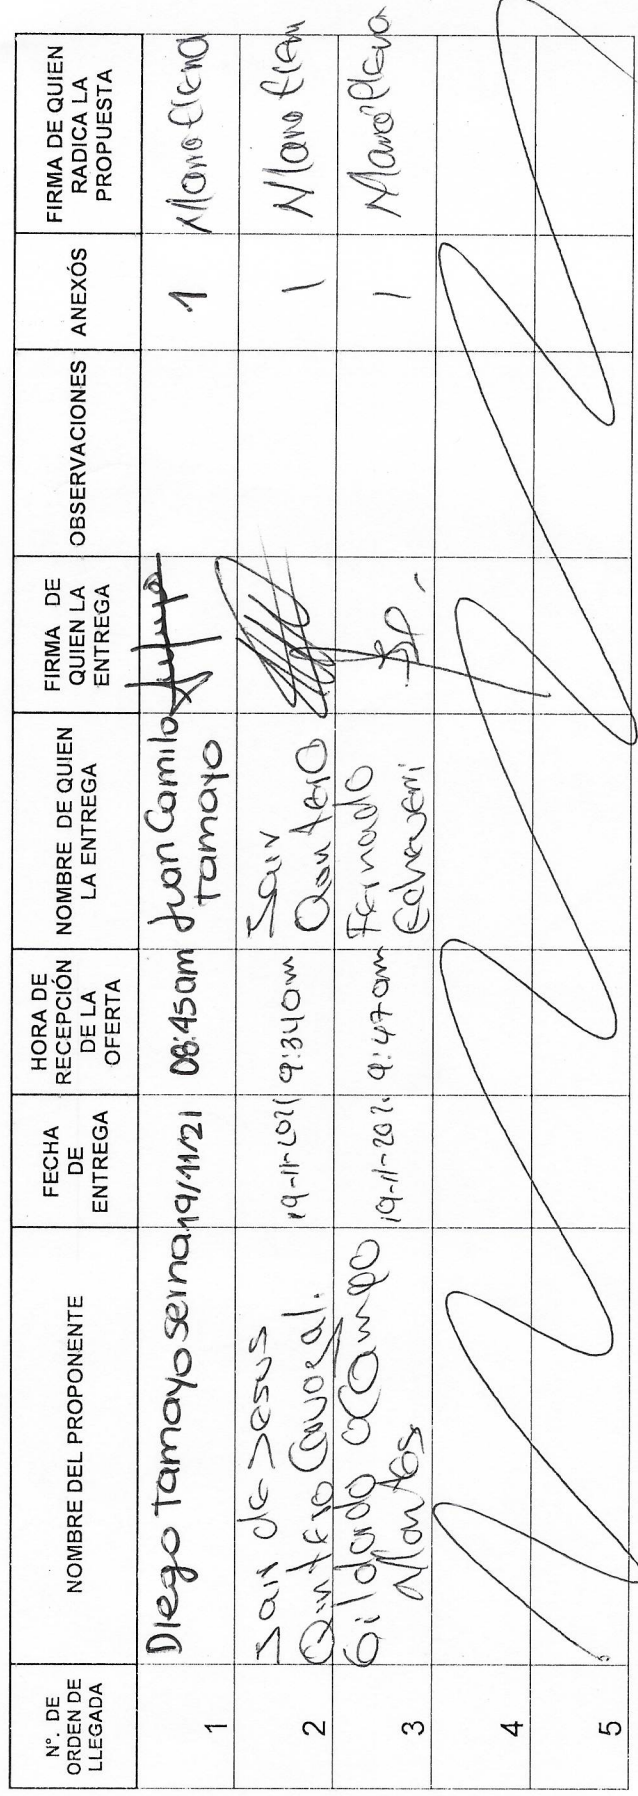 N°. DE
ORDEN DE
LLEGADA
NOMBRE DEL PROPONENTE
FECHA
DE
ENTREGA
HORA DE
RECEPCIÓN
DE LA
OFERTA
NOMBRE DE QUIEN
LA ENTREGA
FIRMA DE
QUIEN LA
ENTREGA
OBSERVACIONES
ANEXÓS
FIRMA DE QUIEN
RADICA LA
PROPUESTA
1
Diego Tamayo Serna
19/11/21
08:45am
Juan Camilo
Tamayo
1
2
Jair de Jesus
Quintero
19-11-2021
9:340m
Jair
Quintero
1
3
Gildardo Ocampo
Montes
19-11-202
9:47am
Fernado
Echeverri
1
4
5